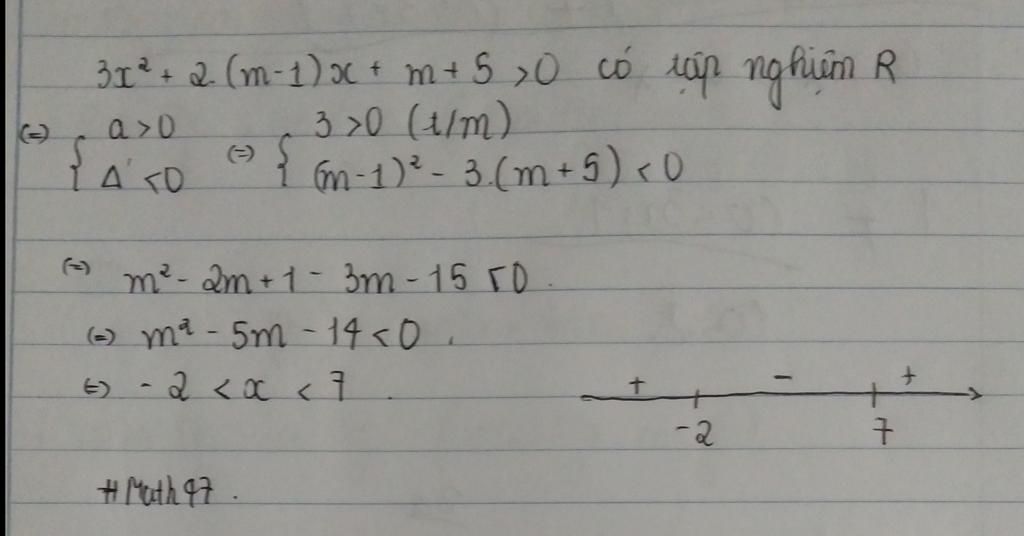 3x² + 2.(m-1)x + m + 5 > 0 có tập nghiệm R
(=) { a > 0 (=) { 3 > 0 (t/m)
Δ' < 0 (m-1)² - 3.(m+5) < 0
(=) m² - 2m + 1 - 3m - 15 < 0.
(=) m² - 5m - 14 < 0.
(=) -2 < x < 7.
+ - +
-2 7
#Math97.